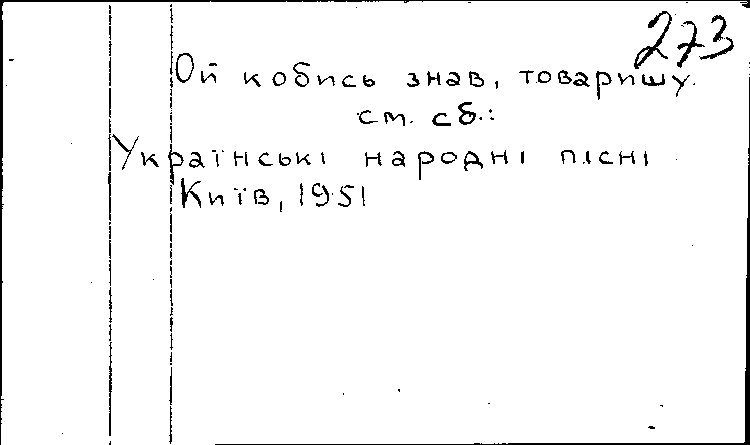 273
Ой кобись знав, товаришу.
см. сб.:
Українські народні пісні
Київ, 1951